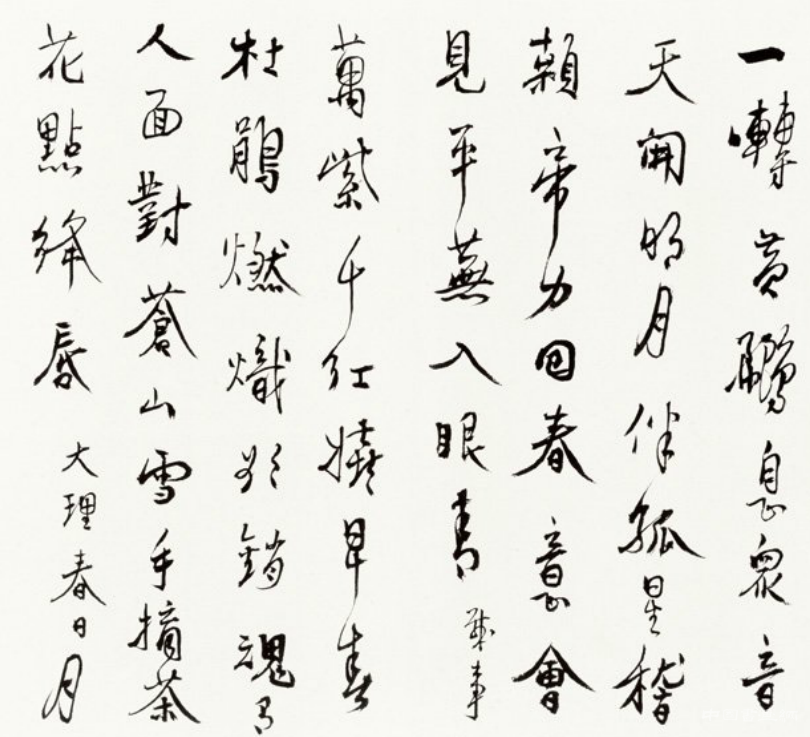 一囀黃鸝息衆音
天開明月伴孤星稽
顙帝力回春意會
見平蕪入眼青 事
萬紫千紅早春
杜鵑燃熾欲銷魂有
人面對蒼山雪手摘茶
花點絳唇 大理春日月